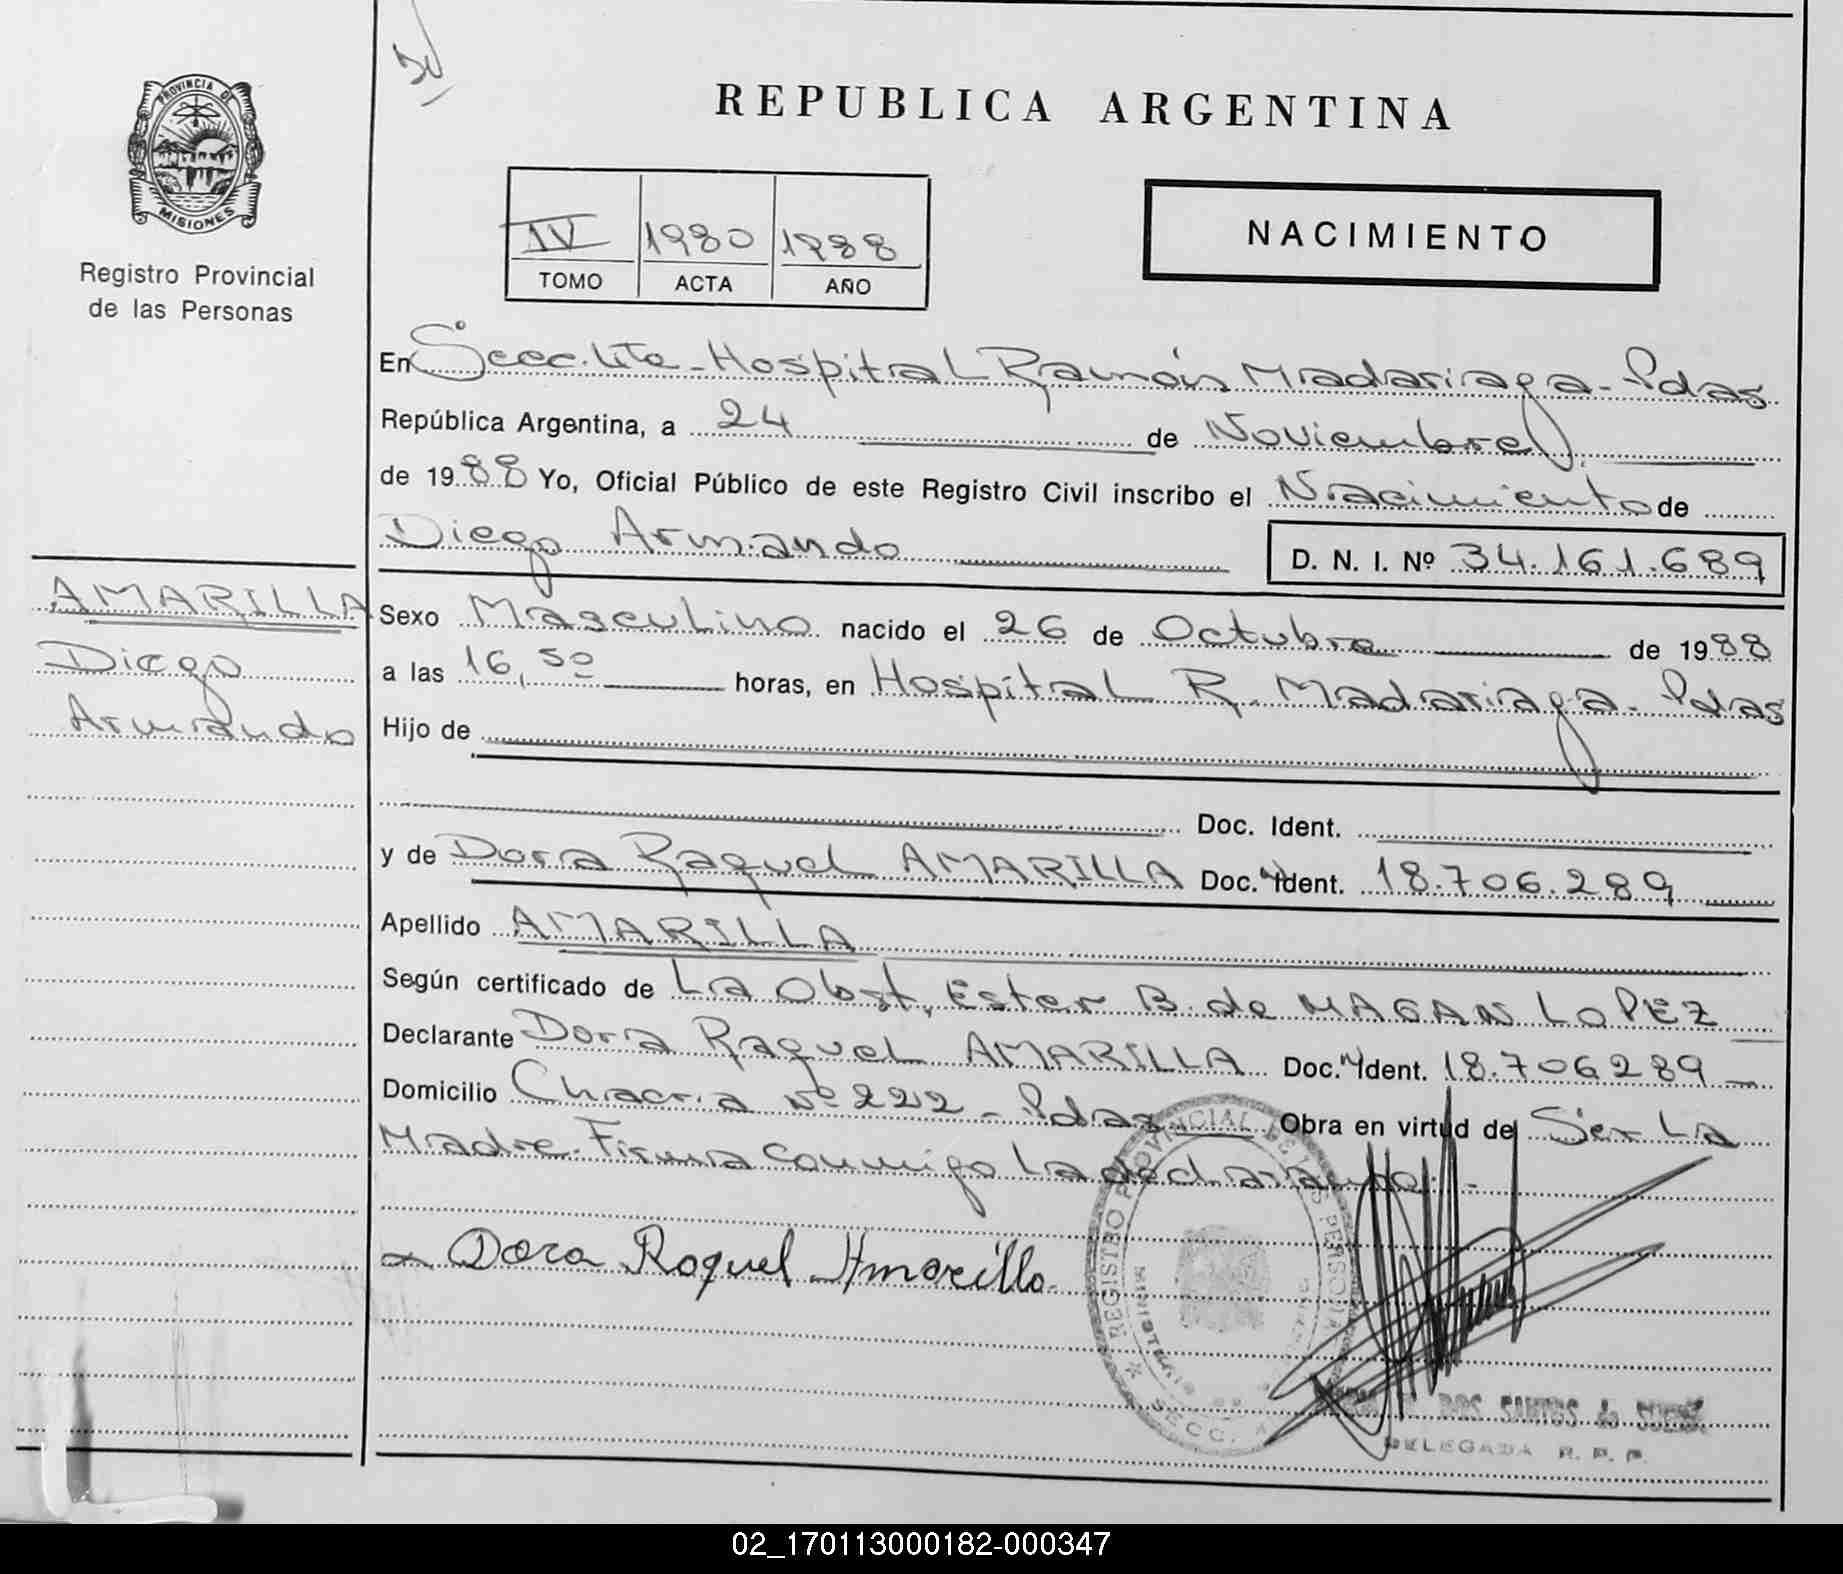 PROVINCIA DE
MISIONES
Registro Provincial
de las Personas
REPUBLICA ARGENTINA
IV 1980 1988
TOMO ACTA AÑO
NACIMIENTO
En Secc. Hospital Ramón Madariaga - Pdas
República Argentina, a 24 de Noviembre
de 1988 Yo, Oficial Público de este Registro Civil inscribo el Nacimiento de
Diego Armando D. N. I. Nº 34.161.689
AMARILLA
Diego
Armando
Sexo Masculino nacido el 26 de Octubre de 1988
a las 16,50 horas, en Hospital R. Madariaga - Pdas
Hijo de
Doc. Ident.
y de Dora Raquel AMARILLA Doc. Ident. 18.706.289
Apellido AMARILLA
Según certificado de La Obst. Ester B. de MAGAN LOPEZ
Declarante Dora Raquel AMARILLA Doc. Ident. 18.706289
Domicilio Chacra Nº 222 - Pdas Obra en virtud de Ser La
Madre. Firma Conmigo La declarante. -
Dora Raquel Amarilla
REGISTRO PROVINCIAL DE LAS PERSONAS
SECC.
DOS SANTOS de
DELEGADA R. P. P.
02_170113000182-000347